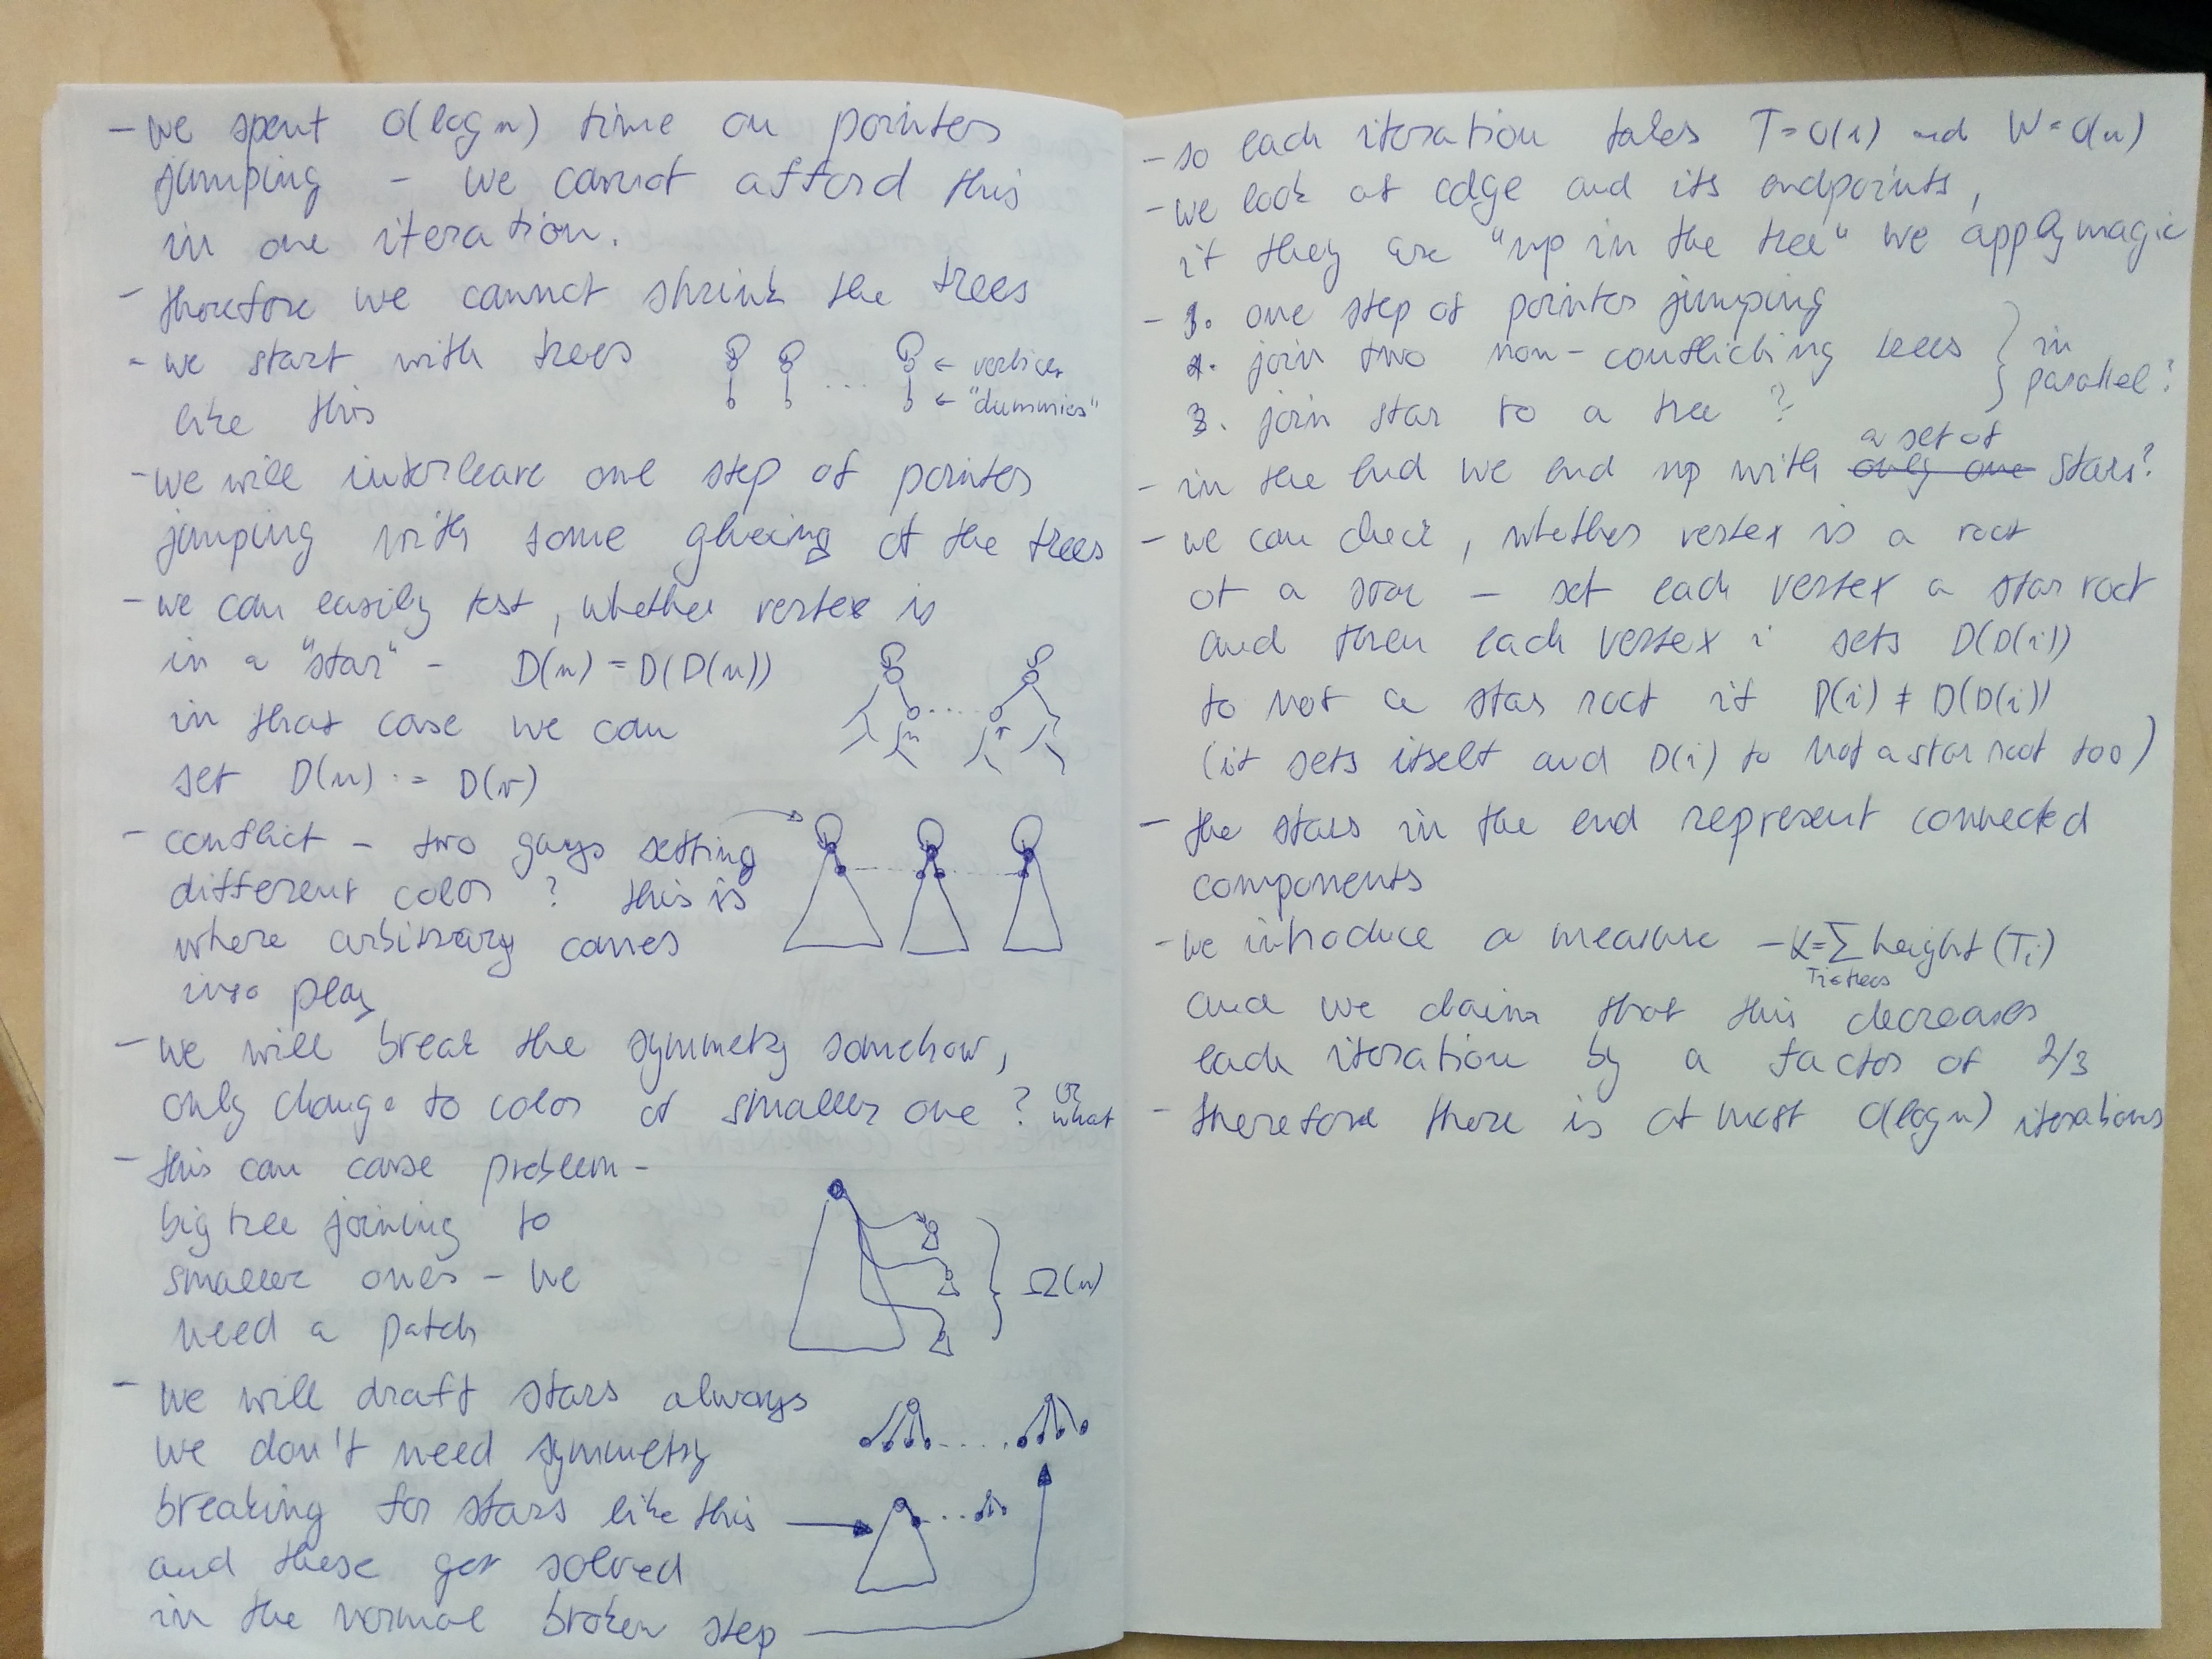 - we spent O(log n) time on pointer
jumping - we cannot afford this
in one iteration.
- therefore we cannot shrink the trees
- we start with trees
like this
... ← vertices
← "dummies"
- we will interleave one step of pointer
jumping with some glueing of the trees
- we can easily test, whether vertex is
in a "star" - D(u) = D(D(u))
in that case we can
set D(u) := D(v)
....
u v
- conflict - two guys setting
different color ? this is
where arbitrary comes
into play
- we will break the symmetry somehow,
only change to color of smaller one ? or
what
- this can cause problem -
big tree joining to
smaller ones - we
need a patch
Ω(n)
- we will draft stars always
we don't need symmetry
breaking for stars like this
and these get solved
in the normal broken step
- so each iteration takes T=O(1) and W=O(n)
- we look at edge and its endpoints,
if they are "up in the tree" we apply magic
- 1. one step of pointer jumping
2. join two non-conflicting trees
3. join star to a tree ?
in
parallel?
a set of
- in the end we end up with only one stars?
- we can check, whether vertex is a root
of a star - set each vertex a star root
and then each vertex i sets D(D(i))
to not a star root if D(i) ≠ D(D(i))
(it sets itself and D(i) to not a star root too)
- the stars in the end represent connected
components
- we introduce a measure - K=∑ height(Ti)
Ti∈trees
and we claim that this decreases
each iteration by a factor of 2/3
- therefore there is at most O(log n) iterations